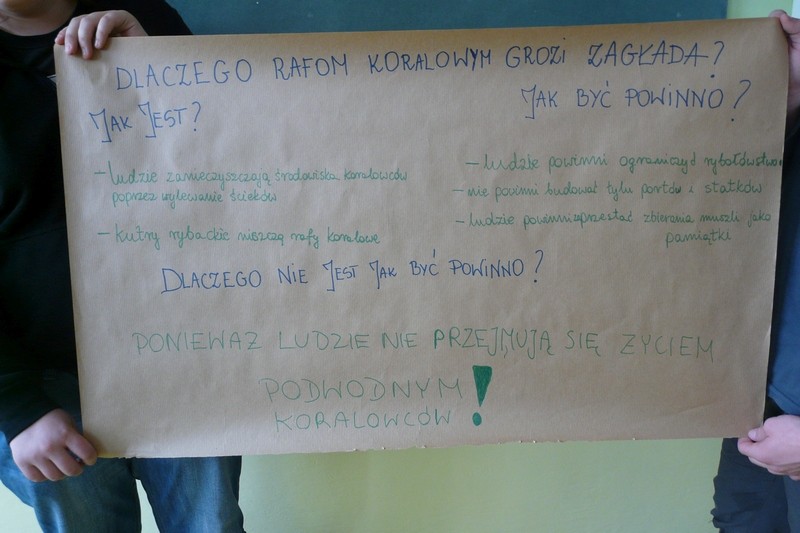 DLACZEGO RAFOM KORALOWYM GROZI ZAGŁADA?
JAK JEST?
- ludzie zanieczyszczają środowiska koralowców
poprzez wylewanie ścieków
- kutry rybackie niszczą rafy koralowe
JAK BYĆ POWINNO?
- ludzie powinni ograniczyć rybołówstwo
- nie powinni budować tylu portów i statków
- ludzie powinni uprzestać zbierania muszli jako
pamiątki
DLACZEGO NIE JEST JAK BYĆ POWINNO?
PONIEWAŻ LUDZIE NIE PRZEJMUJĄ SIĘ ŻYCIEM
PODWODNYM
KORALOWCÓW!